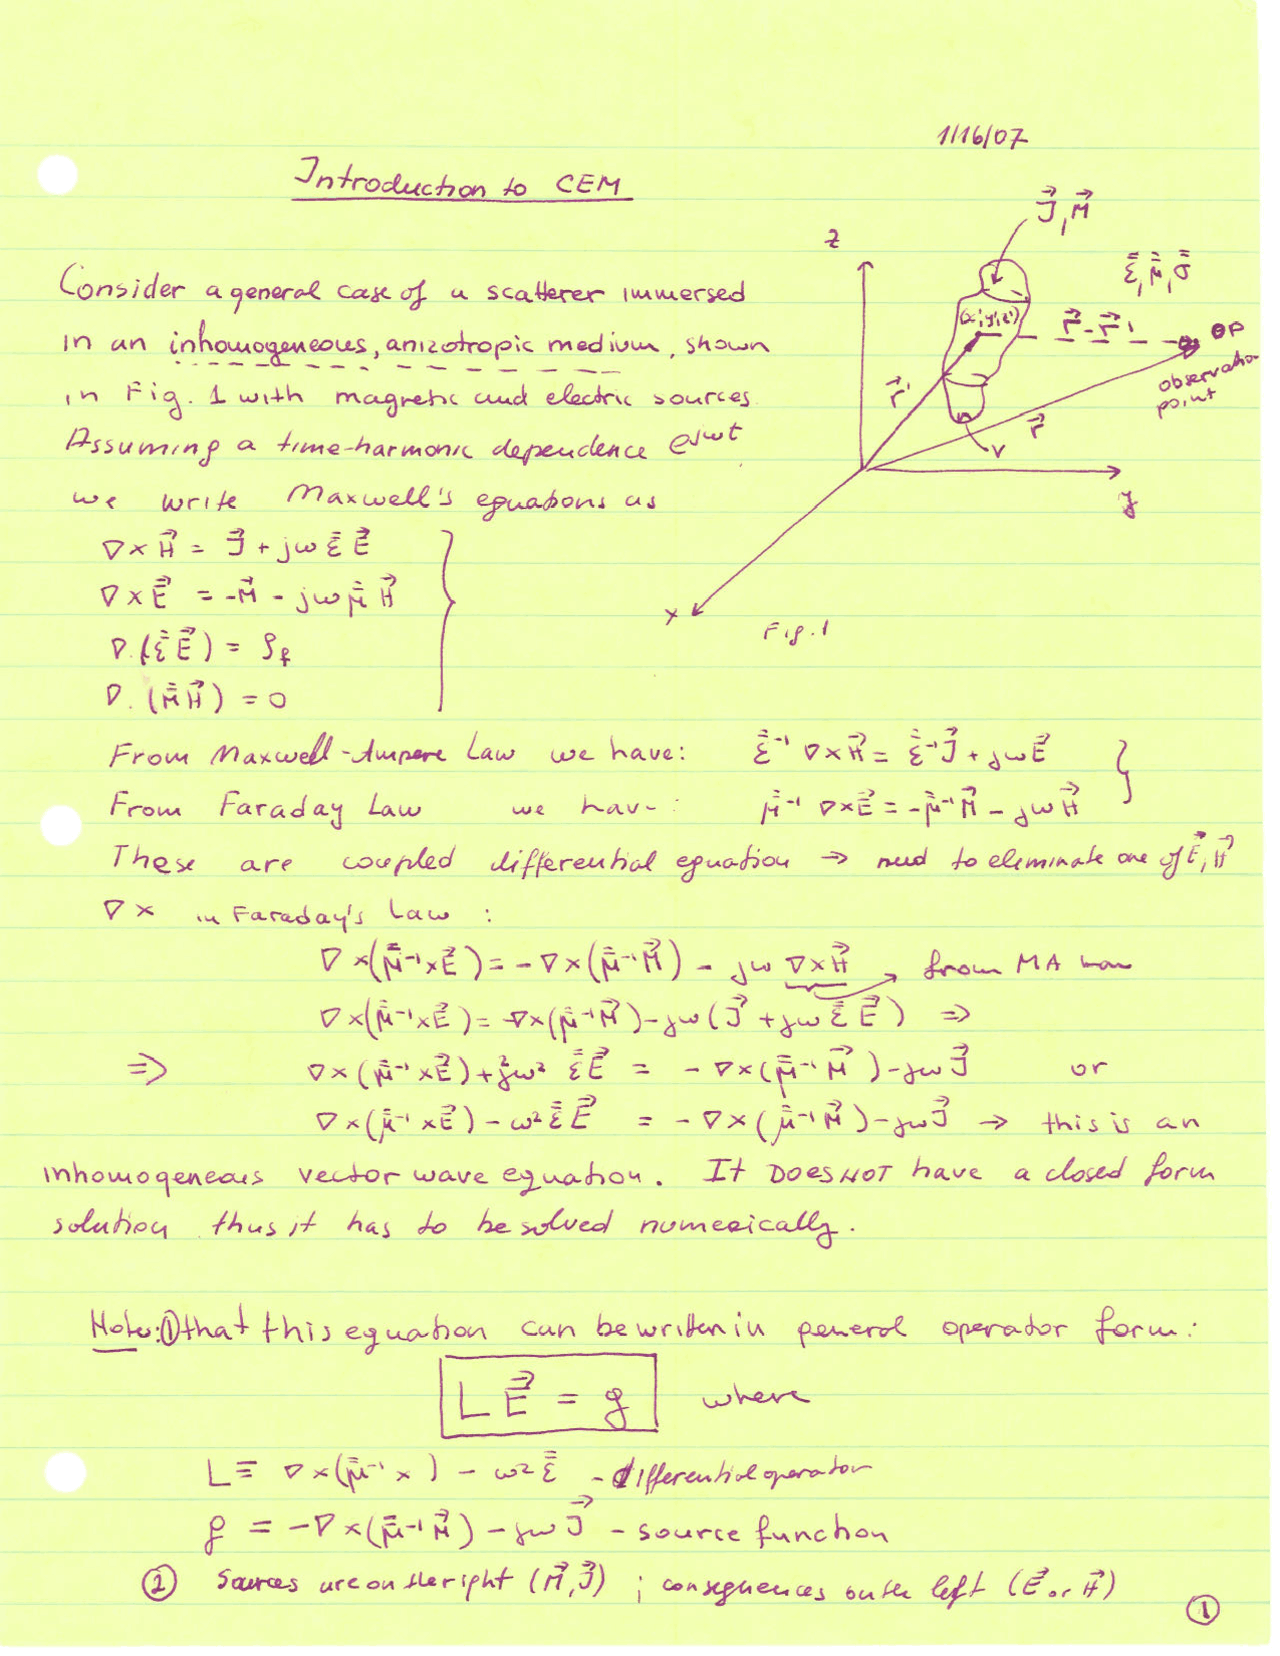 1/16/07
Introduction to CEM
J⃗, M⃗
z
ε̿, μ̿, σ̿
(x',y',z')
r⃗ - r⃗'
OP
observation
point
r⃗'
r⃗
V
y
x
Fig. 1
Consider a general case of a scatterer immersed
in an inhomogeneous, anizotropic medium, shown
in Fig. 1 with magnetic and electric sources.
Assuming a time-harmonic dependence e^{jωt}
we write Maxwell's equations as
∇×H⃗ = J⃗ + jω ε̿ E⃗
∇×E⃗ = -M⃗ - jω μ̿ H⃗
∇·(ε̿ E⃗) = ρf
∇·(μ̿ H⃗) = 0
From Maxwell-Ampere Law we have: ε̿⁻¹ ∇×H⃗ = ε̿⁻¹ J⃗ + jωE⃗
From Faraday Law we have: μ̿⁻¹ ∇×E⃗ = -μ̿⁻¹ M⃗ - jωH⃗
These are coupled differential equation → need to eliminate one of E⃗, H⃗
∇× in Faraday's Law:
∇×(μ̿⁻¹×E⃗) = -∇×(μ̿⁻¹M⃗) - jω ∇×H⃗ → from MA law
∇×(μ̿⁻¹×E⃗) = -∇×(μ̿⁻¹M⃗) - jω(J⃗ + jω ε̿ E⃗) ⇒
⇒ ∇×(μ̿⁻¹×E⃗) + j²ω² ε̿E⃗ = -∇×(μ̿⁻¹ M⃗) - jωJ⃗ or
∇×(μ̿⁻¹×E⃗) - ω² ε̿ E⃗ = -∇×(μ̿⁻¹M⃗) - jωJ⃗ → this is an
inhomogeneous vector wave equation. It DOES NOT have a closed form
solution thus it has to be solved numerically.
Note: ① that this equation can be written in general operator form:
L E⃗ = g where
L ≡ ∇×(μ̿⁻¹× ) - ω² ε̿ - differential operator
g = -∇×(μ̿⁻¹M⃗) - jωJ⃗ - source function
② Sources are on the right (M⃗,J⃗) ; consequences on the left (E⃗ or H⃗)
①